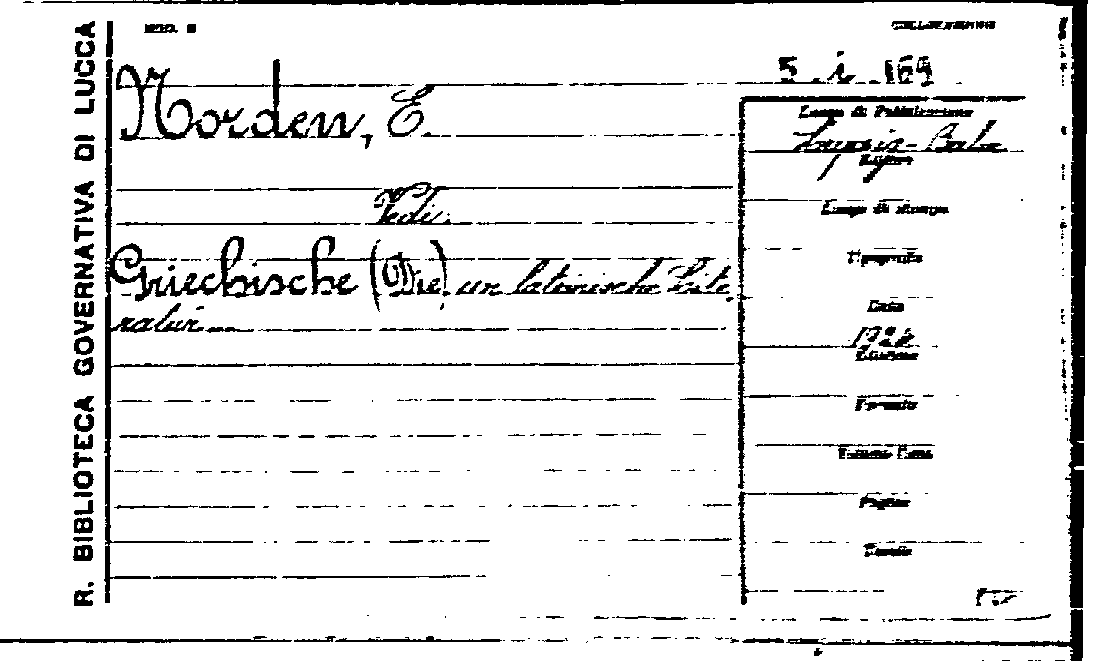 R. BIBLIOTECA GOVERNATIVA DI LUCCA
MOD. 
COLLOCAZIONE
5 . i . 169
Norden, E.
Luogo di Pubblicazione
Editore
Vedi:
Luogo di stampa
Griechische (Die) un lateinische Lite
ratur
Tipografia
Data
Edizione
Formato
Volume
Pagine
Tavole